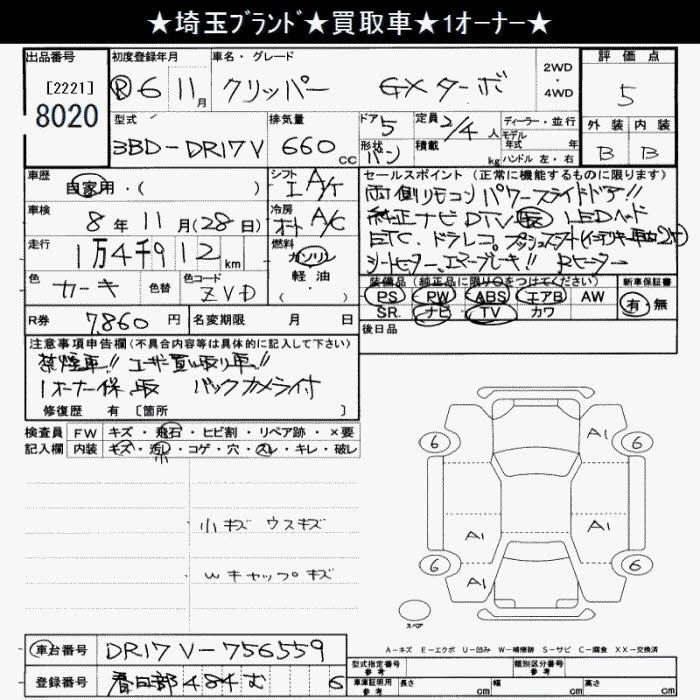 ★埼玉ブランド★買取車★1オーナー★
出品番号
[2221]
8020
初度登録年月
R 6 11月
車名・グレード
クリッパー GXターボ
2WD
・4WD
評価点
5
型式
3BD-DR17V
排気量
660 cc
ドア 5
形状 バン
定員 2/4 人
積載 kg
ディーラー・並行
モデル
年式 年
ハンドル 左・右
外装 内装
B B
車歴
自家用・( )
シフト
I A/T
セールスポイント (正常に機能するものに限ります)
両側リモコンパワースライドドア!!
純正ナビDTV LEDヘッド
ETC. ドラレコ プッシュスタート
シートヒーター. エマブレーキ!! Rヒーター
車検
8年11月(28日)
冷房
オート A/C
走行
1万4千912km
燃料
ガソリン
軽油
・( )
色
カーキ
色替
色コード
ZVD
装備品 (純正品に限り○をつけてください)
PS PW ABS エアB AW
SR ナビ TV カワ
新車保証書
有・無
R券
7860円
名変期限 月 日
後日品
注意事項申告欄(不具合内容等は具体的に記入して下さい)
禁煙車!! ユーザー買い取り車!!
1オーナー保、取 バックカメラ付
修復歴 有 [箇所 ]
検査員 FW キズ・飛石・ヒビ割・リペア跡・×要
記入欄 内装 キズ・汚レ・コゲ・穴・スレ・キレ・破レ
小キズ ウスキズ
Wキャップキズ
6 A1 6
A1 A1
6 A1 6
スペア
A-キズ E-エクボ U-凹み W-補修跡 S-サビ C-腐食 XX-交換済
車台番号 DR17V-756559
登録番号 春日部 484 む 6
型式指定番号
参考
類別区分番号
参考
車庫証明用
参考
長さ cm 幅 cm 高さ cm